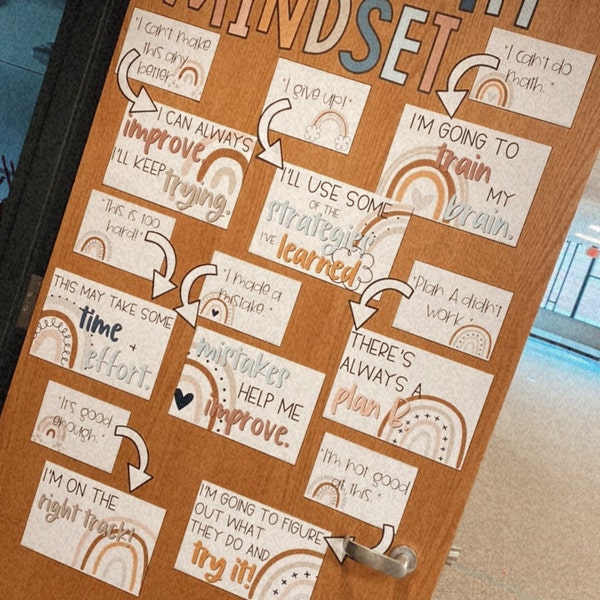 MINDSET
"I can't make
this any
better."
I CAN ALWAYS
improve
I'LL KEEP
trying.
"I give up!"
I'LL USE SOME
OF THE
strategies
I'VE
learned.
"I can't do
math."
I'M GOING TO
train
MY
brain.
"This is too
hard!"
THIS MAY TAKE SOME
time +
effort.
"I made a
mistake."
mistakes
HELP ME
improve.
"Plan A didn't
work."
THERE'S
ALWAYS A
plan B.
"It's good
enough."
I'M ON THE
right track!
"I'm not good
at this."
I'M GOING TO FIGURE
OUT WHAT
THEY DO AND
try it!